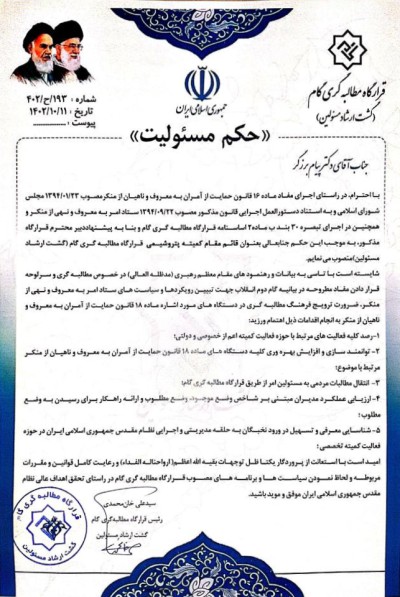 قرارگاه مطالبه گری گام
(گشت ارشاد مسئولین)
جمهوری اسلامی ایران
شماره : ۴۰۲/ح/۱۹۳
تاریخ : ۱۴۰۲/۱۰/۱۱
پیوست :
«حکم مسئولیت»
جناب آقای دکتر پیام برزگر
با احترام، در راستای اجرای مفاد ماده ۱۶ قانون حمایت از آمران به معروف و ناهیان از منکر مصوب ۱۳۹۴/۰۱/۲۳ مجلس
شورای اسلامی و به استناد دستورالعمل اجرایی قانون مذکور مصوب ۱۳۹۴/۰۹/۲۲ ستاد امر به معروف و نهی از منکر و
همچنین در اجرای تبصره ۲۰ بند ب ماده۲ اساسنامه قرارگاه مطالبه گری گام و بنا به پیشنهاددبیر محترم قرارگاه
مذکور، به موجب این حکم جنابعالی بعنوان قائم مقام کمیته پتروشیمی قرارگاه مطالبه گری گام (گشت ارشاد
مسئولین)منصوب می نمایم.
شایسته است با تاسی به بیانات و رهنمود های مقام معظم رهبری (مدظله العالی) در خصوص مطالبه گری و سرلوحه
قرار دادن مفاد مطروحه در بیانیه گام دوم انقلاب جهت تبیین رویکردها و سیاست های ستاد امر به معروف و نهی از
منکر، ضرورت ترویج فرهنگ مطالبه گری در دستگاه های مورد اشاره ماده ۱۸ قانون حمایت از آمران به معروف و
ناهیان از منکر به انجام اقدامات ذیل اهتمام ورزید:
۱-رصد کلیه فعالیت های مرتبط با حوزه فعالیت کمیته اعم از خصوصی و دولتی؛
۲- توانمند سازی و افزایش بهره وری کلیه دستگاه های ماده ۱۸ قانون حمایت از آمران به معروف و ناهیان از منکر
مرتبط با موضوع؛
۳- انتقال مطالبات مردمی به مسئولین امر از طریق قرارگاه مطالبه گری گام؛
۴- ارزیابی عملکرد مدیران مبتنی بر شاخص وضع موجود، وضع مطلوب و ارائه راهکار برای رسیدن به وضع
مطلوب؛
۵- شناسایی معرفی و تسهیل در ورود نخبگان به حلقه مدیریتی و اجرایی نظام مقدس جمهوری اسلامی ایران در حوزه
فعالیت کمیته تخصصی؛
امید است با استعانت از پروردگار یکتا ظل توجهات بقیه الله اعظم(ارواحناله الفداء) و رعایت کامل قوانین و مقررات
مربوطه و لحاظ نمودن سیاست ها و برنامه های مصوب قرارگاه مطالبه گری گام در راستای تحقق اهداف عالی نظام
مقدس جمهوری اسلامی ایران موفق و موید باشید.
سیدعلی خان‌محمدی
رئیس قرارگاه مطالبه‌گری گام
گشت ارشاد مسئولین
قرارگاه مطالبه گری گام
گشت ارشاد مسئولین